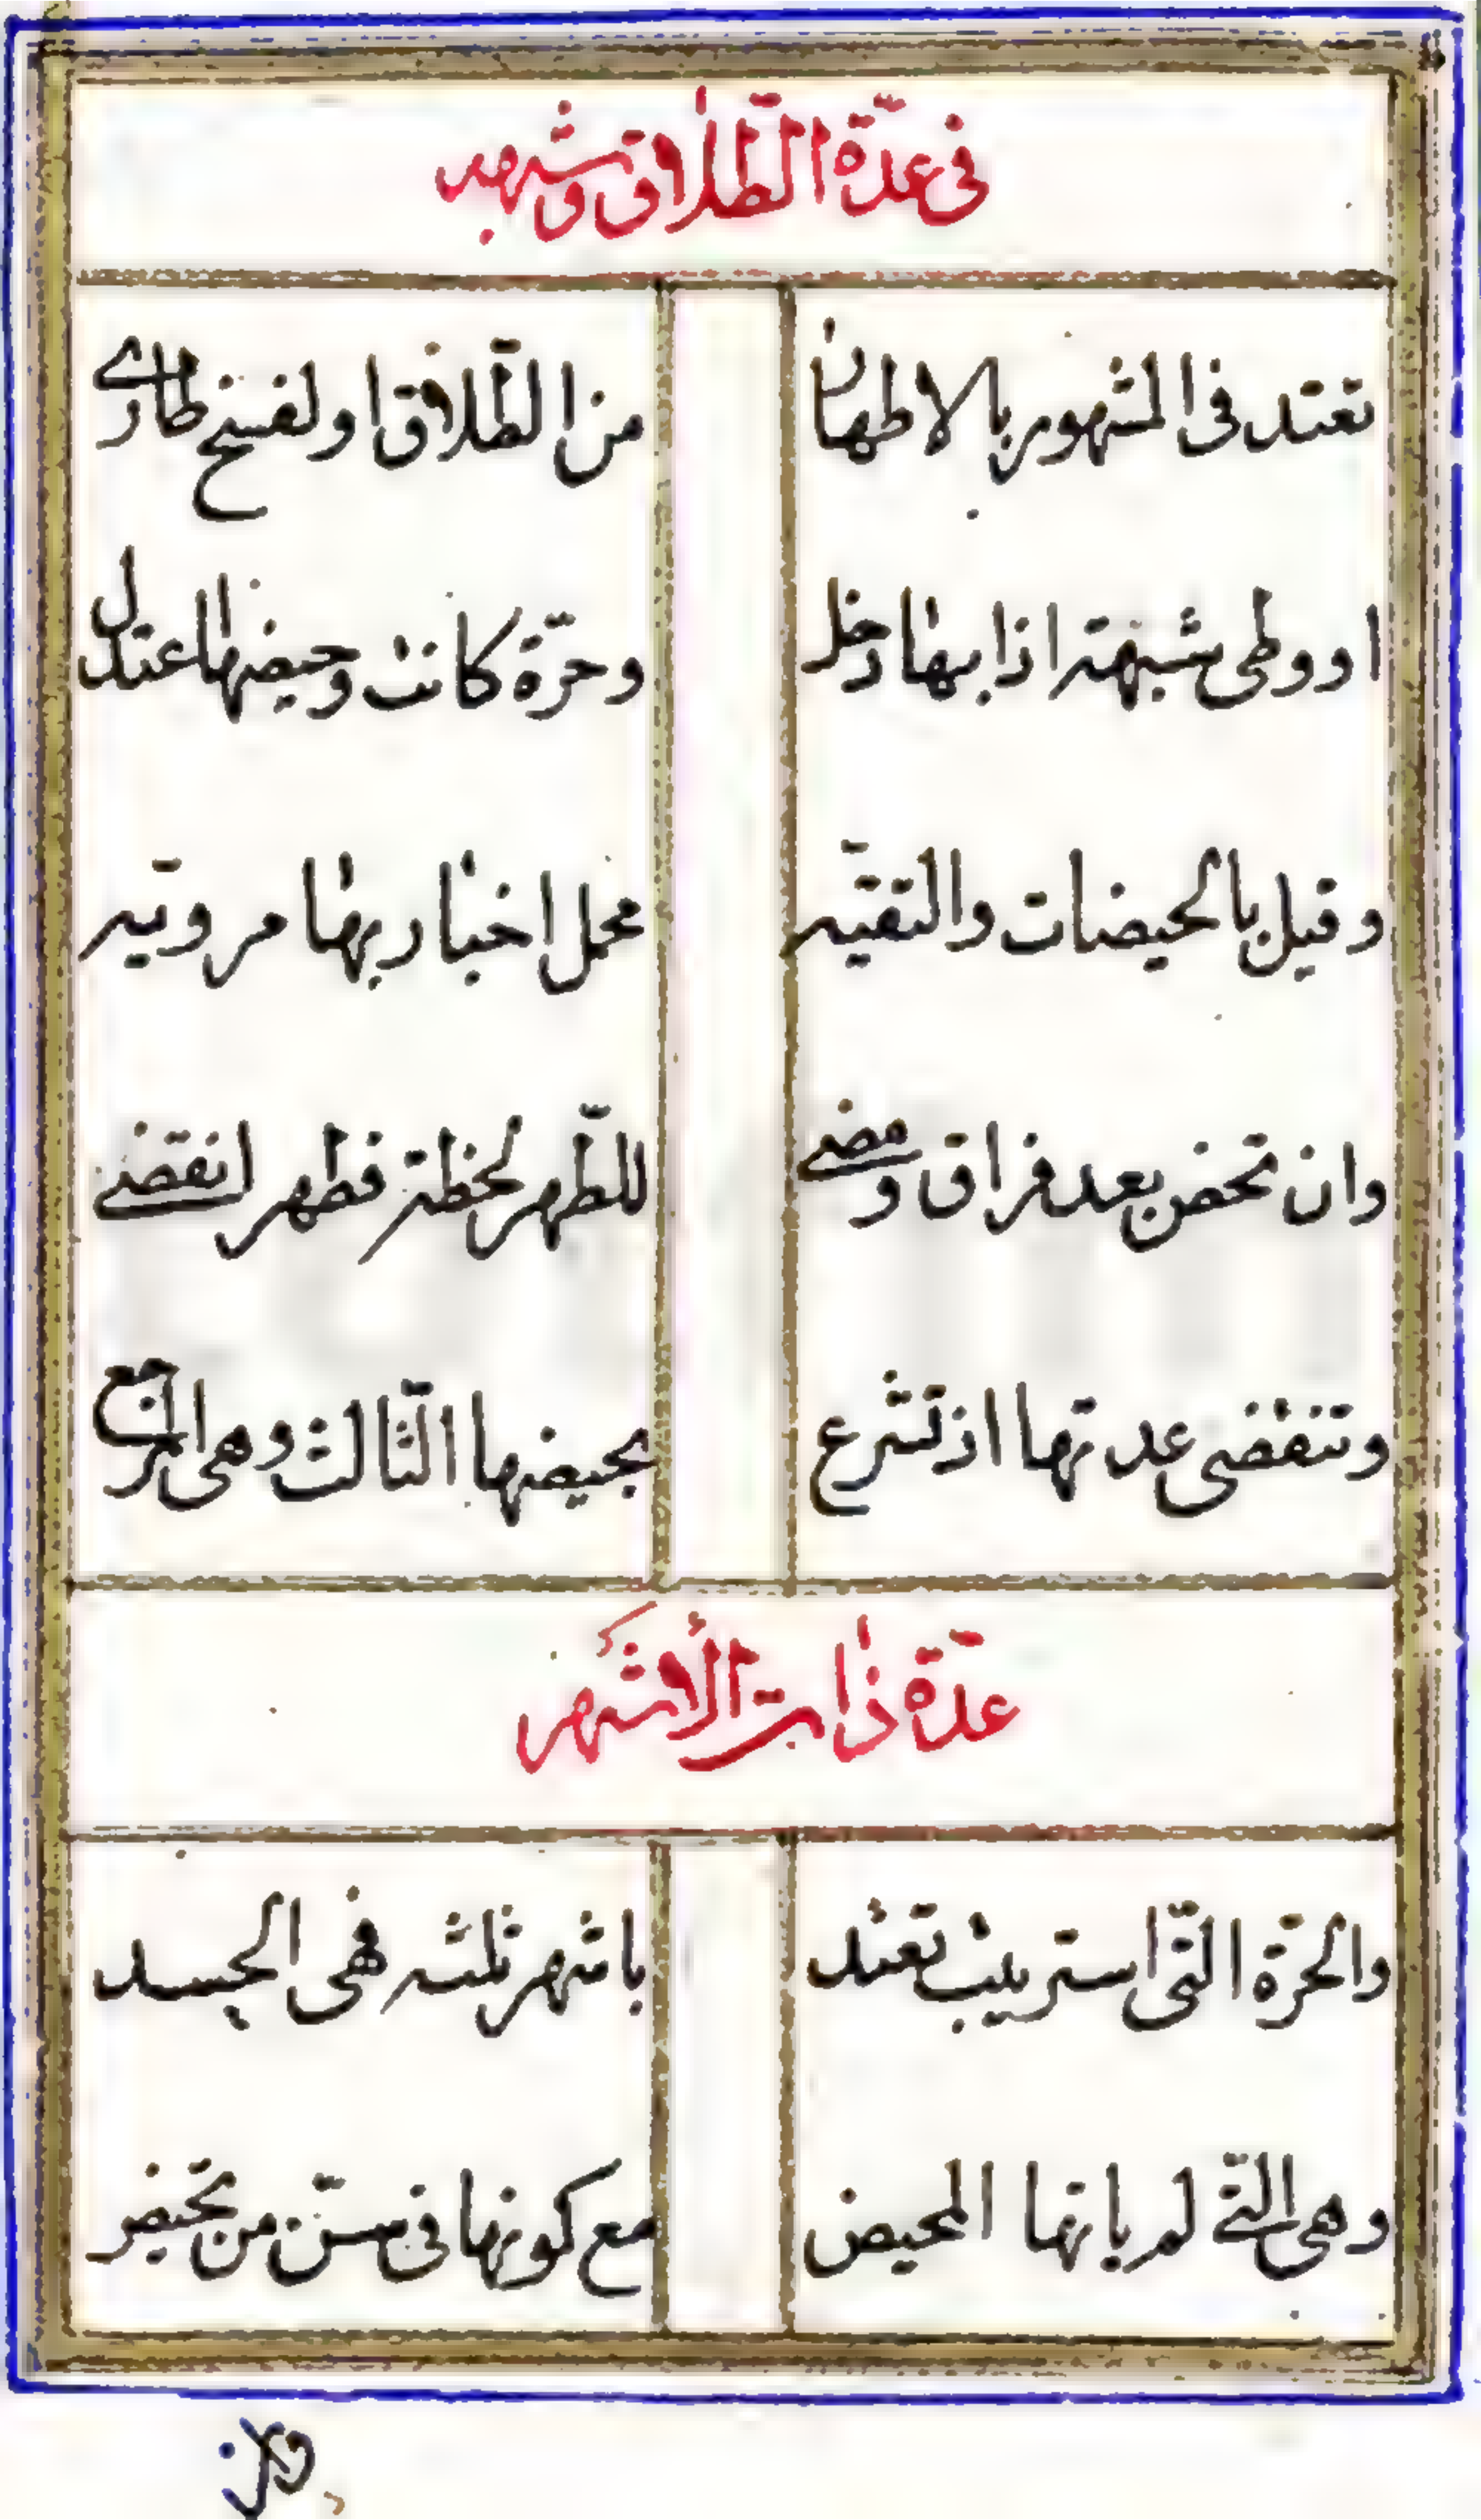 فى عدّة الطّلاق وشبهه
تعتد فى المشهور بالاطهار من الطّلاق او لفسخ طارى
او وطى شبهة اذا بها دخل وحرّة كانت وحيضها اعتدل
وقيل بالحيضات والتقيّه محمل اخبار بها مرويّه
وان تحض بعد فراق ومضى للطّهر لحظة فطهر انقضى
وتنقضى عدتها اذ تشرع بحيضها الثّالث وهى المرجع
عدّة ذات الأشهر
والحرّة التّى استريبت تعتد باشهر ثلثه فهى الجسد
وهى التّى لم ياتها المحيض مع كونها فى سنّ من تحيض